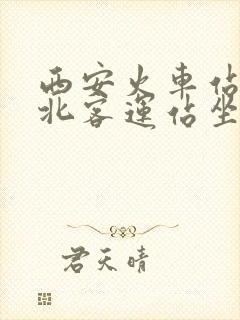 西安火車佔
北客運佔坐
君天晴